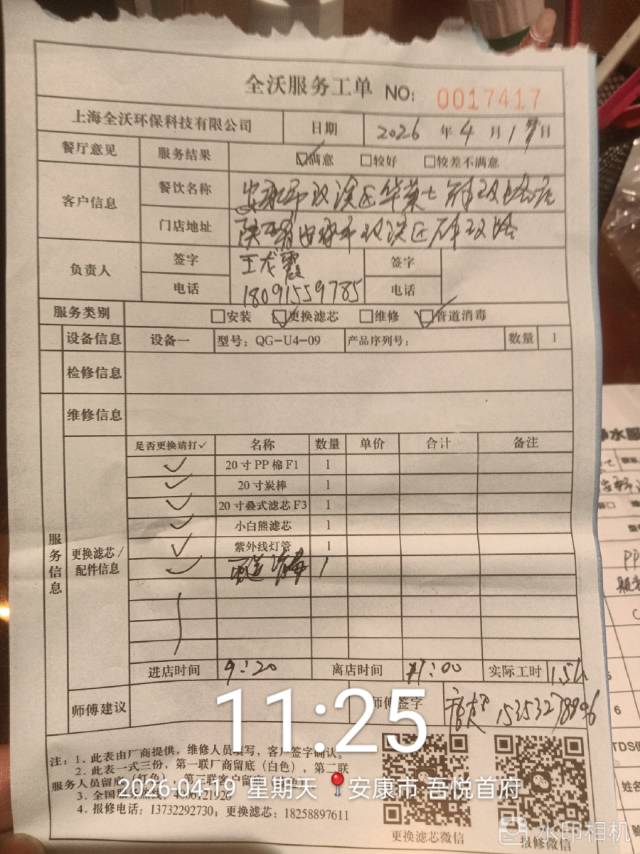 全沃服务工单 NO: 0017417
上海全沃环保科技有限公司 日期 2026 年 4 月 19 日
餐厅意见 服务结果 ☑满意 □较好 □较差不满意
客户信息 餐饮名称 安康市汉滨区华莱士
门店地址 陕西省安康市汉滨区
负责人 签字 王龙霞 签字
电话 18091559785 电话
服务类别 □安装 ☑更换滤芯 □维修 ☑管道消毒
设备信息 设备一 型号: QG-U4-09 产品序列号: 数量 1
检修信息
维修信息
服务信息
更换滤芯/配件信息
是否更换请打✓ 名称 数量 单价 合计 备注
✓ 20寸PP棉F1 1
✓ 20寸炭棒 1
✓ 20寸叠式滤芯F3 1
✓ 小白熊滤芯 1
✓ 紫外线灯管 1
✓ 管道消毒 1
进店时间 9:20 离店时间 11:00 实际工时 1.5h
师傅建议 师傅签字 15353278896
11:25
注: 1. 此表由厂商提供, 维修人员填写, 客户签字确认。
2. 此表一式三份, 第一联厂商留底(白色), 第二联
服务人员留底(红色), 第三联客户留底
3. 全国
4. 报修电话: 13732292730; 更换滤芯: 18258897611
2026-04-19 星期天 安康市 吾悦首府
更换滤芯微信 报修微信
水印相机